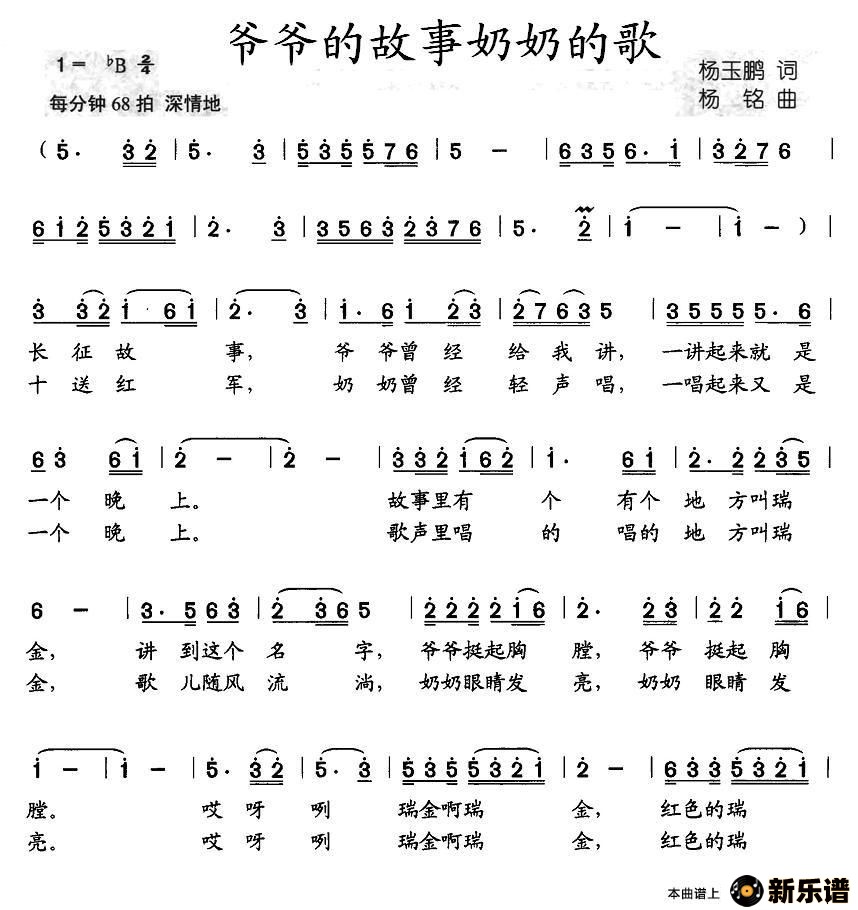 爷爷的故事奶奶的歌
1= ♭B 2/4
杨玉鹏 词
每分钟 68 拍 深情地
杨 铭 曲
(5̇· 3̇2̇ | 5̇· 3̇ | 5̇3̇5̇5̇76 | 5 – | 635̇6·1̇ | 3̇2̇76 |
61̇2̇5̇3̇2̇1̇ | 2̇· 3̇ | 35632̇3̇76 | 5· 2̇ | 1̇ – | 1̇ –) |
3̇ 3̇2̇1̇· 61̇ | 2̇· 3̇ | 1̇·61̇ 2̇3̇ | 2̇763̇5 | 35555·6 |
长征故 事, 爷爷曾经 给我讲, 一讲起来就是
十送红 军, 奶奶曾经 轻声唱, 一唱起来又是
63̇ 61̇ | 2̇ – | 2̇ – | 3̇3̇2̇1̇62̇ | 1̇· 61̇ | 2̇·2̇2̇3̇5 |
一个 晚 上。 故事里有 个 有个 地 方叫瑞
一个 晚 上。 歌声里唱 的 唱的 地 方叫瑞
6 – | 3̇·563̇ | 2̇ 3̇65 | 2̇2̇2̇2̇1̇6 | 2̇· 2̇3̇ | 2̇2̇ 1̇6 |
金, 讲 到这个 名 字, 爷爷挺起胸 膛, 爷爷 挺起 胸
金, 歌 儿随风 流 淌, 奶奶眼睛发 亮, 奶奶 眼睛 发
1̇ – | 1̇ – | 5̇· 3̇2̇ | 5̇· 3̇ | 5̇3̇5̇5̇3̇2̇1̇ | 2̇ – | 63̇3̇5̇3̇2̇1̇ |
膛。 哎 呀 咧 瑞金啊瑞 金, 红色的瑞
亮。 哎 呀 咧 瑞金啊瑞 金, 红色的瑞
本曲谱上 新乐谱